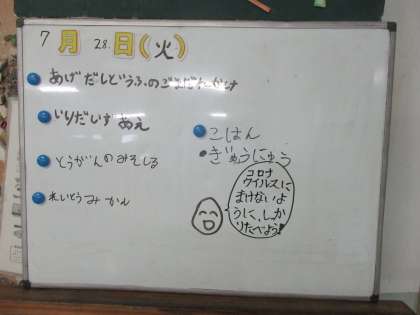 7月28.日(火)
あげだしどうふの
いりだいずあえ
ごはん
ぎゅうにゅう
とうがんのみそしる
れいとうみかん
コロナ
ウイルスに
まけないよ
うに、しっか
りたべよう!